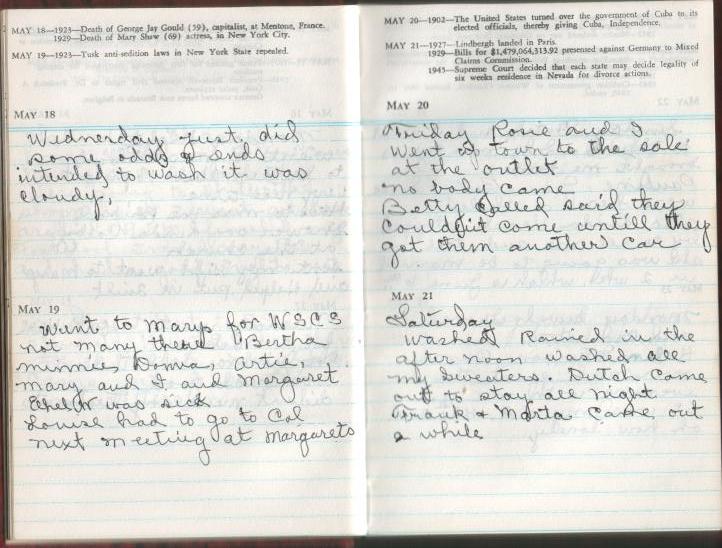 MAY 18—1923—Death of George Jay Gould (59), capitalist, at Mentone, France.
1929—Death of Mary Shaw (69) actress, in New York City.
MAY 19—1923—Tusk anti-sedition laws in New York State repealed.
MAY 18
Wednesday just did
some odds & ends
intended to wash it was
cloudy,
MAY 19
Went to Marys for WSCS
not many there Bertha
minnie, Donna, Artie,
mary and I and Margaret
Ethel W was sick
Louise had to go to Col
next meeting at Margarets
MAY 20—1902—The United States turned over the government of Cuba to its
elected officials, thereby giving Cuba, Independence.
MAY 21—1927—Lindbergh landed in Paris.
1929—Bills for $1,479,064,313.92 presented against Germany to Mixed
Claims Commission.
1945—Supreme Court decided that each state may decide legality of
six weeks residence in Nevada for divorce actions.
MAY 20
Friday Rosie and I
went to town to the sale
at the outlet
no body came
Betty called said they
couldnt come untill they
got them another car
MAY 21
Saturday
Washed Rained in the
after noon washed all
my sweaters. Dutch came
out to stay all night
Frank & Marta came out
a while